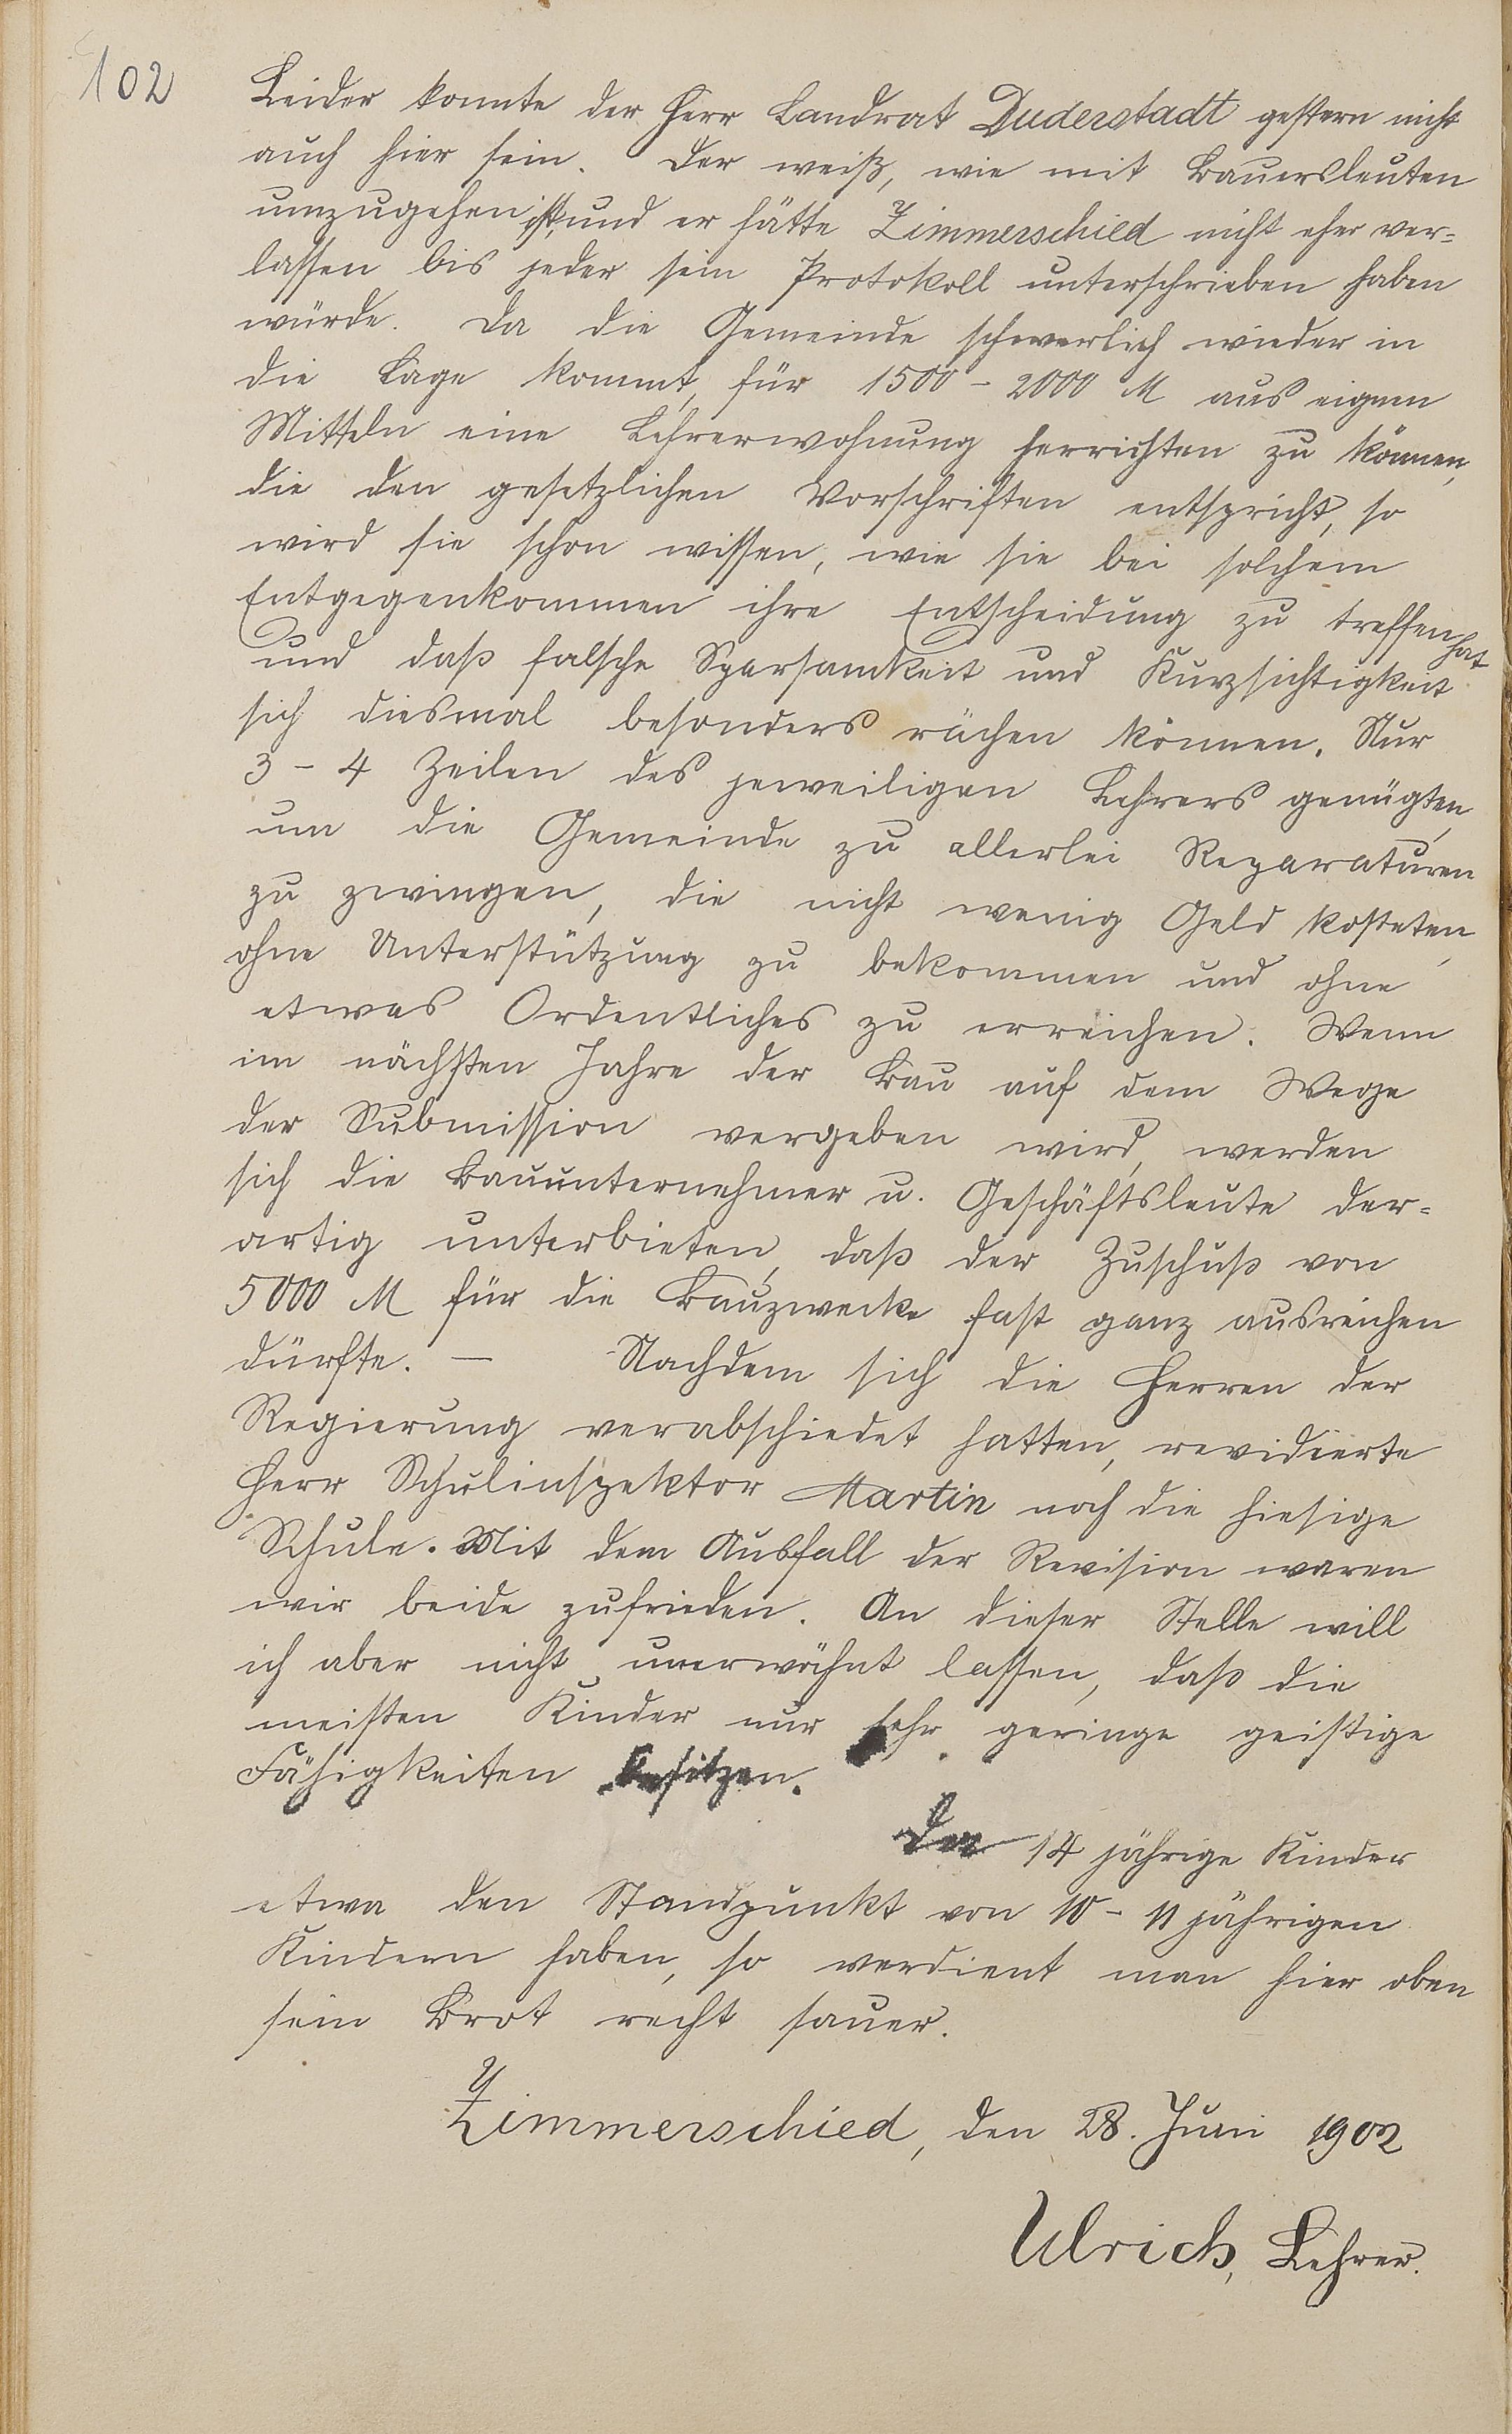 102
Leider konnte der Herr Landrat Duderstadt gestern nicht
auch hier sein. Der weiß, wie mit Bauersleuten
umzugehen ist, und er hätte Zimmerschied nicht eher ver=
lassen bis jeder sein Protokoll unterschrieben haben
würde. Da die Gemeinde schwerlich wieder in
die Lage kommt, für 1500 - 2000 M aus eignen
Mitteln eine Lehrerwohnung herrichten zu können,
die den gesetzlichen Vorschriften entspricht, so
wird sie schon wissen, wie sie bei solchem
Entgegenkommen ihre Entscheidung zu treffen hat
und daß falsche Sparsamkeit und Kurzsichtigkeit
sich diesmal besonders rächen können. Nur
3 - 4 Zeilen des jeweiligen Lehrers genügten,
um die Gemeinde zu allerlei Reparaturen
zu zwingen, die nicht wenig Geld kosteten,
ohne Unterstützung zu bekommen und ohne
etwas Ordentliches zu erreichen. Wenn
im nächsten Jahre der Bau auf dem Wege
der Submission vergeben wird, werden
sich die Bauunternehmer u. Geschäftsleute der=
artig unterbieten, daß der Zuschuß von
5000 M für die Bauzwecke fast ganz ausreichen
dürfte. — Nachdem sich die Herren der
Regierung verabschiedet hatten, revidierte
Herr Schulinspektor Martin noch die hiesige
Schule. Mit dem Ausfall der Revision waren
wir beide zufrieden. An dieser Stelle will
ich aber nicht unerwähnt lassen, daß die
meisten Kinder nur sehr geringe geistige
Fähigkeiten besitzen.
Da 14 jährige Kinder
etwa den Standpunkt von 10 - 11 jährigen
Kindern haben, so verdient man hier oben
sein Brot recht sauer.
Zimmerschied, den 28. Juni 1902
Ulrich, Lehrer.